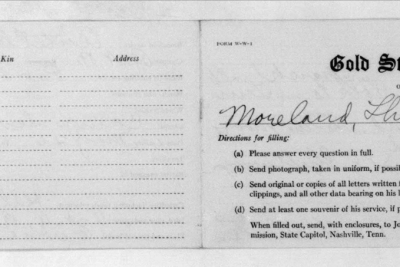 Kin Address
FORM W-W-1
Gold St
Moreland,
Directions for filling:
(a) Please answer every question in full.
(b) Send photograph, taken in uniform, if possib
(c) Send original or copies of all letters written f
clippings, and all other data bearing on his l
(d) Send at least one souvenir of his service, if p
When filled out, send, with enclosures, to Jo
mission, State Capitol, Nashville, Tenn.